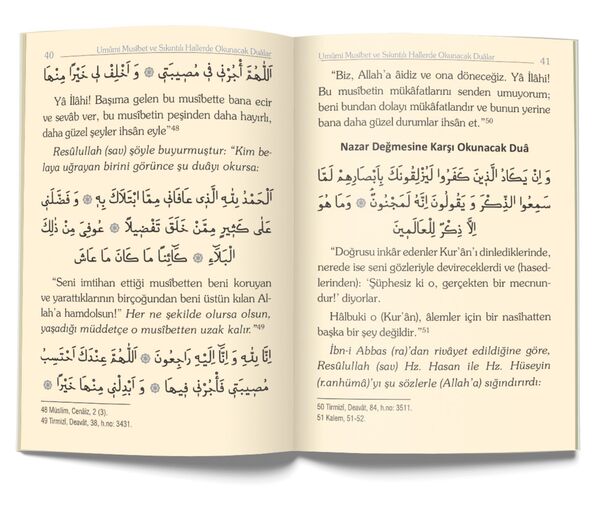 40
Umûmi Musîbet ve Sıkıntılı Hallerde Okunacak Duâlar
اَللّٰهُمَّ أْجُرْنٖي فٖي مُصٖيبَتٖي ۞ وَ اَخْلِفْ لٖي خَيْرًا مِنْهَا
Yâ İlahi! Başıma gelen bu musîbette bana ecir
ve sevâb ver, bu musîbetin peşinden daha hayırlı,
daha güzel şeyler ihsan eyle”48
Resûlullah (sav) şöyle buyurmuştur: “Kim be-
laya uğrayan birini görünce şu duâyı okursa:
اَلْحَمْدُ لِلّٰهِ الَّذٖي عَافَانٖي مِمَّا ابْتَلَاكَ بِهٖ ۞ وَ فَضَّلَنٖي
عَلٰى كَثٖيرٍ مِمَّنْ خَلَقَ تَفْضٖيلًا ۞ عُوفِيَ مِنْ ذٰلِكَ
الْبَلَٓاءِ ۞ كَٓائِنًا مَا كَانَ مَا عَاشَ
“Seni imtihan ettiği musîbetten beni koruyan
ve yarattıklarının birçoğundan beni üstün kılan Al-
lah’a hamdolsun!” Her ne şekilde olursa olsun,
yaşadığı müddetçe o musîbetten uzak kalır.”49
اِنَّا لِلّٰهِ وَ اِنَّٓا اِلَيْهِ رَاجِعُونَ ۞ اَللّٰهُمَّ عِنْدَكَ اَحْتَسِبُ
مُصٖيبَتٖي فَأْجُرْنٖي فٖيهَا ۞ وَ اَبْدِلْنٖي مِنْهَا خَيْرًا ۞
48 Müslim, Cenâiz, 2 (3).
49 Tirmizî, Deavât, 38, h.no: 3431.
Umûmi Musîbet ve Sıkıntılı Hallerde Okunacak Duâlar
41
“Biz, Allah’a âidiz ve ona döneceğiz. Yâ İlâhi!
Bu musîbetin mükâfatlarını senden umuyorum;
beni bundan dolayı mükâfatlandır ve bunun yerine
bana daha güzel durumlar ihsan et.”50
Nazar Değmesine Karşı Okunacak Duâ
وَ اِنْ يَكَادُ الَّذٖينَ كَفَرُوا لَيُزْلِقُونَكَ بِاَبْصَارِهِمْ لَمَّا
سَمِعُوا الذِّكْرَ وَ يَقُولُونَ اِنَّهُ لَمَجْنُونٌ ۞ وَمَا هُوَ
اِلَّا ذِكْرٌ لِلْعَالَمٖينَ
“Doğrusu inkâr edenler Kur’ân’ı dinlediklerinde,
nerede ise seni gözleriyle devireceklerdi ve (hased-
lerinden): ‘Şüphesiz ki o, gerçekten bir mecnun-
dur!’ diyorlar.
Hâlbuki o (Kur’ân), âlemler için bir nasîhatten
başka bir şey değildir.”51
İbn-i Abbas (ra)’dan rivâyet edildiğine göre,
Resûlullah (sav) Hz. Hasan ile Hz. Hüseyin
(r.anhümâ)’yı şu sözlerle (Allah’a) sığındırırdı:
50 Tirmizî, Deavât, 84, h.no: 3511.
51 Kalem, 51-52.